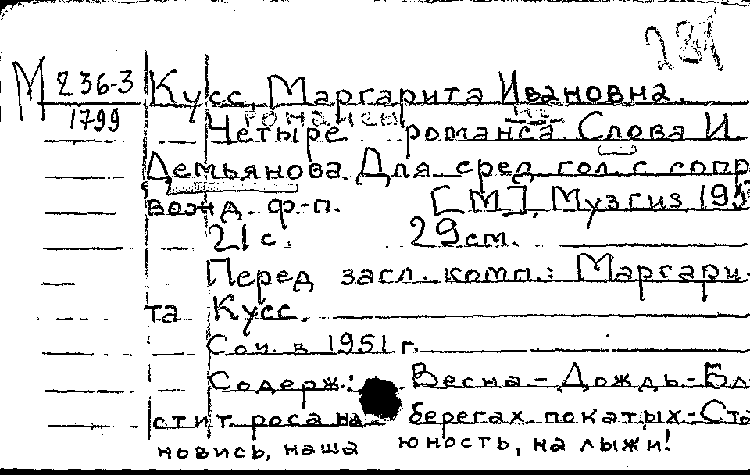 М 236-3 Кусс, Маргарита Ивановна.
1799
Четыре романса Слова И.
Демьянова. Для сред. гол. с сопр
вожд. ф-п. [М], Музгиз 195
21 с. 29 см.
Перед загл. комп.: Маргари-
та Кусс.
Соч. в 1951 г.
Содерж.: Весна - Дождь - Бле
стит роса на берегах покатых - Ста
новись, наша юность, на лыжи!